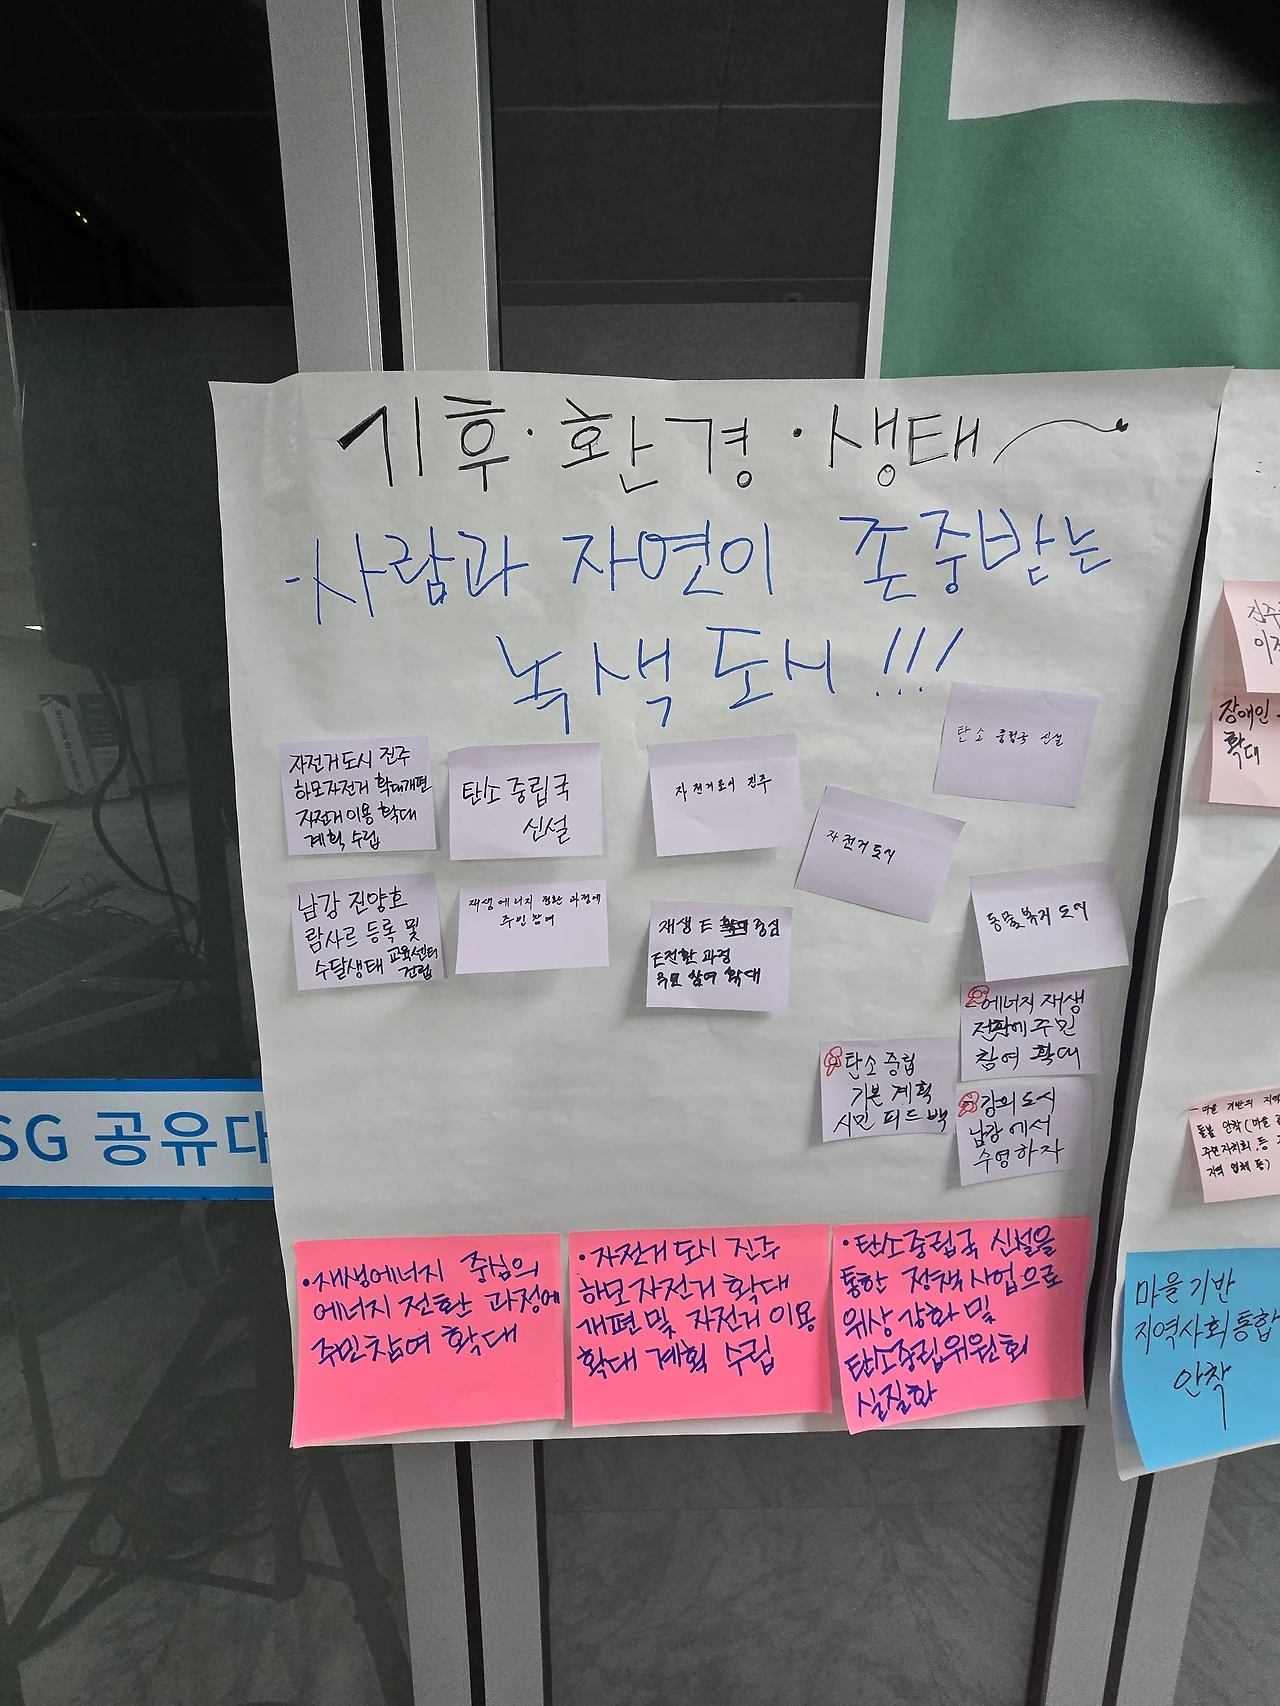 기후·환경·생태
-사람과 자연이 존중받는
녹색 도시!!!
자전거도시 진주
하모자전거 확대개편
자전거이용 확대
계획 수립
탄소중립국
신설
자전거도시 진주
탄소 중립국 신설
자전거도시
남강 진양호
람사르 등록 및
수달생태 교육센터
건립
재생에너지 전환 과정에
주민 참여
재생 E 중심
E전환 과정
주민 참여 확대
동물복지 도시
에너지 재생
전환에 주민
참여 확대
탄소중립
기본 계획
시민 피드백
강의 도시
남강에서
수영하자
·재생에너지 중심의
에너지 전환 과정에
주민참여 확대
·자전거 도시 진주
하모자전거 확대
개편 및 자전거 이용
확대 계획 수립
·탄소중립국 신설을
통한 정책사업으로
위상 강화 및
탄소중립위원회
실질화
SG 공유대
진주
장애인
확대
- 마을 기반의 지역
돌봄 안착(마을
주민자치회, 등
지역 업체 등)
마을기반
지역사회통합
안착